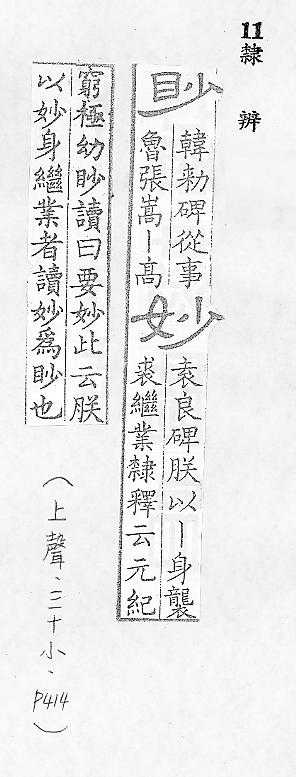 11隸辨
眇
韓勑碑從事
魯張嵩丨髙
妙
袁良碑朕以丨身襲
裘繼業隸釋云元紀
窮極幼眇讀曰要妙此云朕
以妙身繼業者讀妙爲眇也
(上聲、三十小、P414)